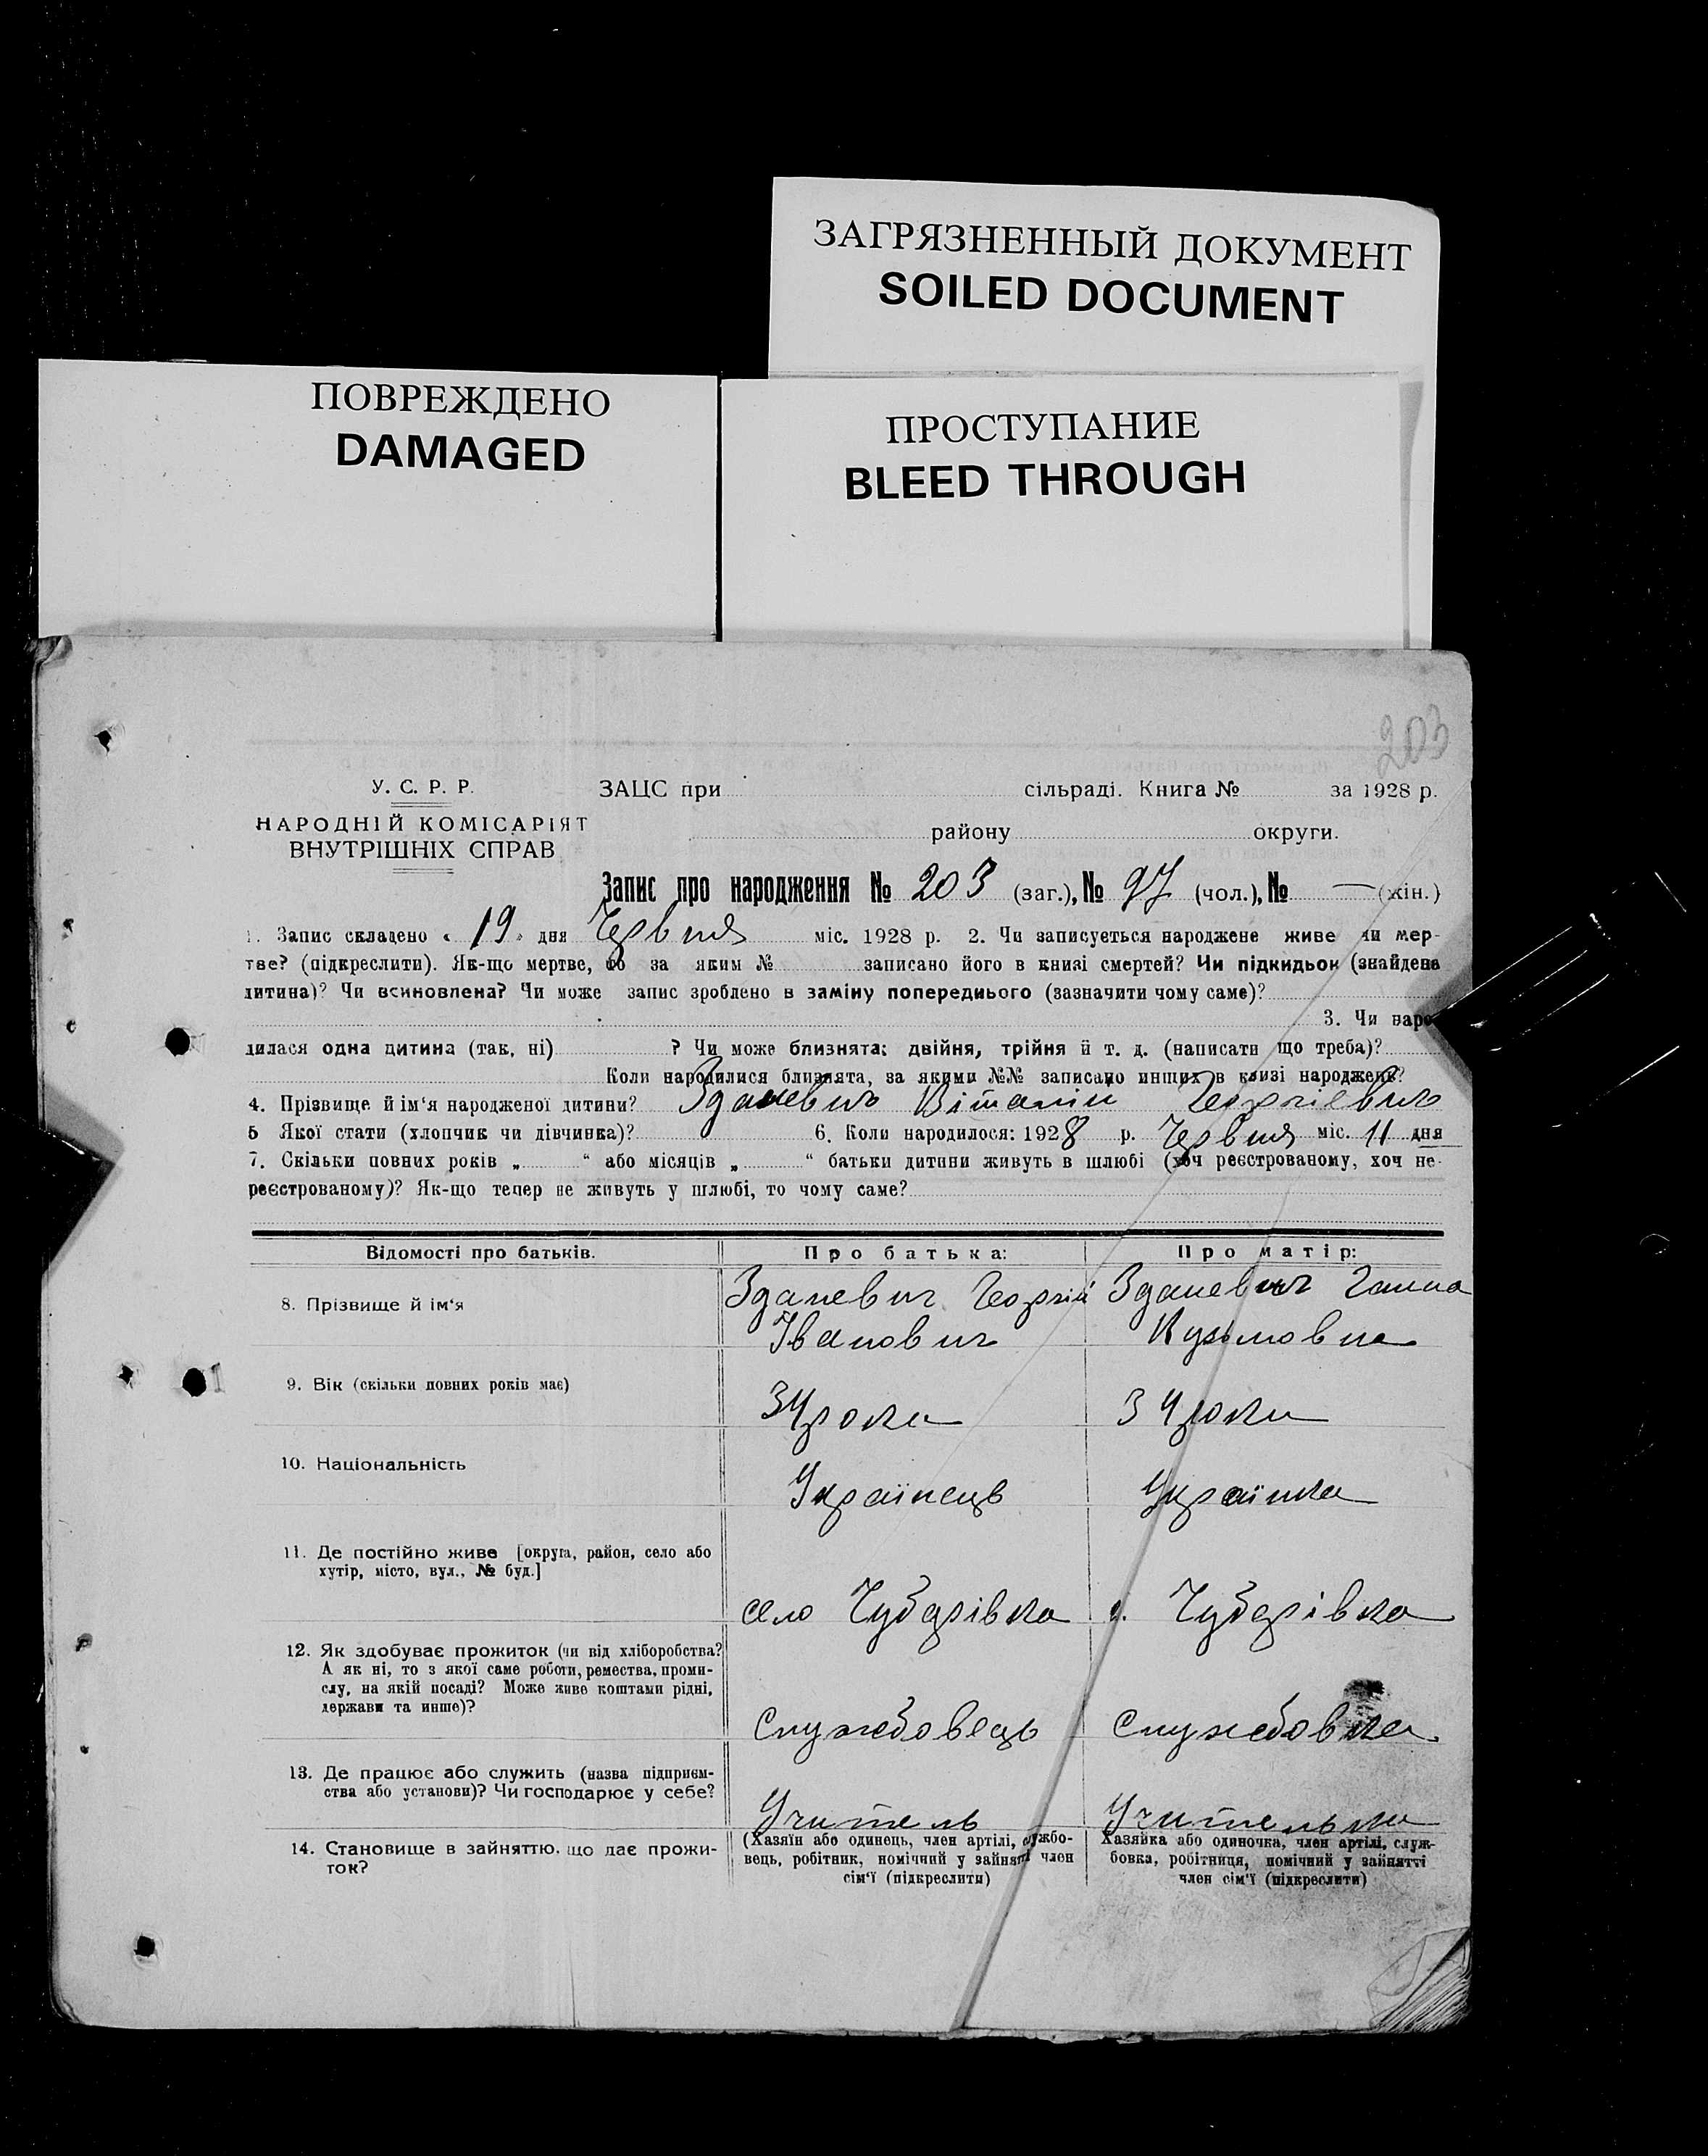 ЗАГРЯЗНЕННЫЙ ДОКУМЕНТ
SOILED DOCUMENT
ПОВРЕЖДЕНО
DAMAGED
ПРОСТУПАНИЕ
BLEED THROUGH
203
У. С. Р. Р.
НАРОДНІЙ КОМІСАРІЯТ
ВНУТРІШНІХ СПРАВ
ЗАЦС при сільраді. Книга № за 1928 р.
району округи.
Запис про народження № 203 (заг.), № 97 (чол.), № — (жін.)
1. Запис складено « 19 » дня Червня міс. 1928 р. 2. Чи записується народжене живе чи мер-
тве? (підкреслити). Як-що мертве, то за яким № записано його в книзі смертей? Чи підкидьок (знайдена
дитина)? Чи всиновлена? Чи може запис зроблено в заміну попереднього (зазначити чому саме)?
3. Чи наро-
дилася одна дитина (так, ні) ? Чи може близнята: двійня, трійня й т. д. (написати що треба)?
Коли народилися близнята, за якими №№ записано инших в книзі народжень?
4. Прізвище й ім'я народженої дитини? Зданевич Віталій Георгієвич
5 Якої стати (хлопчик чи дівчинка)? 6. Коли народилося: 1928 р. Червня міс. 11 дня
7. Скільки повних років „ “ або місяців „ “ батьки дитини живуть в шлюбі (хоч реєстрованому, хоч не-
реєстрованому)? Як-що тепер не живуть у шлюбі, то чому саме?
Відомості про батьків. Про батька: Про матір:
8. Прізвище й ім'я Зданевич Георгій Зданевич Ганна
Іванович Кузьмовна
9. Вік (скільки повних років має)
34 рока 34 роки
10. Національність
Українець Українка
11. Де постійно живе [округа, район, село або
хутір, місто, вул., № буд.]
село Чубарівка с. Чубарівка
12. Як здобуває прожиток (чи від хліборобства?
А як ні, то з якої саме роботи, ремества, проми-
слу, на якій посаді? Може живе коштами рідні,
держави та инше)?
Службовець Службовка
13. Де працює або служить (назва підприєм-
ства або установи)? Чи господарює у себе?
Учитель Учителька
14. Становище в зайняттю, що дає прожи-
ток?
(Хазяїн або одинець, член артілі, службо-
вець, робітник, помічний у зайнятті член
сім'ї (підкреслити)
Хазяйка або одиночка, член артілі, служ-
бовка, робітниця, помічний у зайнятті
член сім'ї (підкреслити)